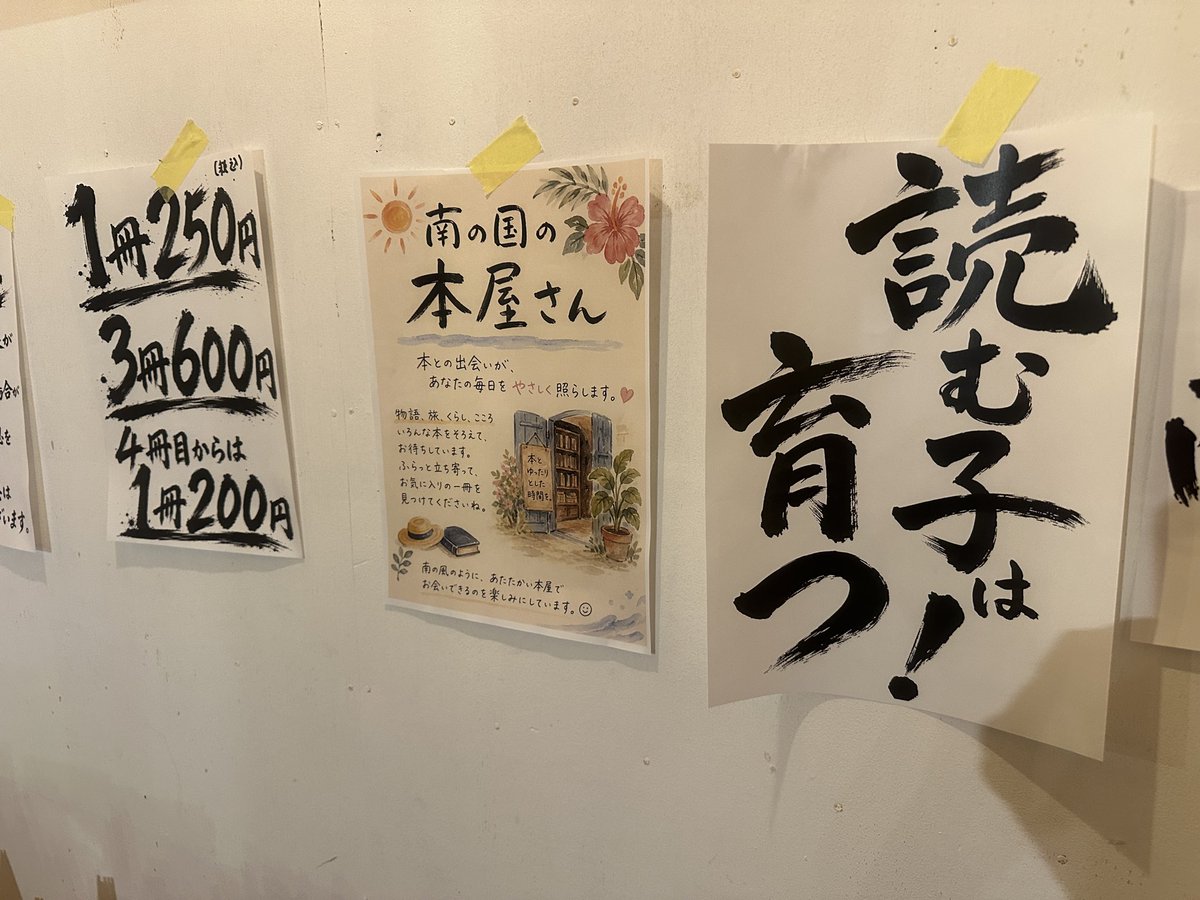 (税込)
1冊250円
3冊600円
4冊目からは
1冊200円
南の国の
本屋さん
本との出会いが、
あなたの毎日をやさしく照らします。
物語、旅、くらし、こころ
いろんな本をそろえて、
お待ちしています。
ふらっと立ち寄って、
お気に入りの一冊を
見つけてくださいね。
本と
ゆったり
とした
時間を。
南の風のように、あたたかい本屋で
お会いできるのを楽しみにしています。
読む子は
育つ!